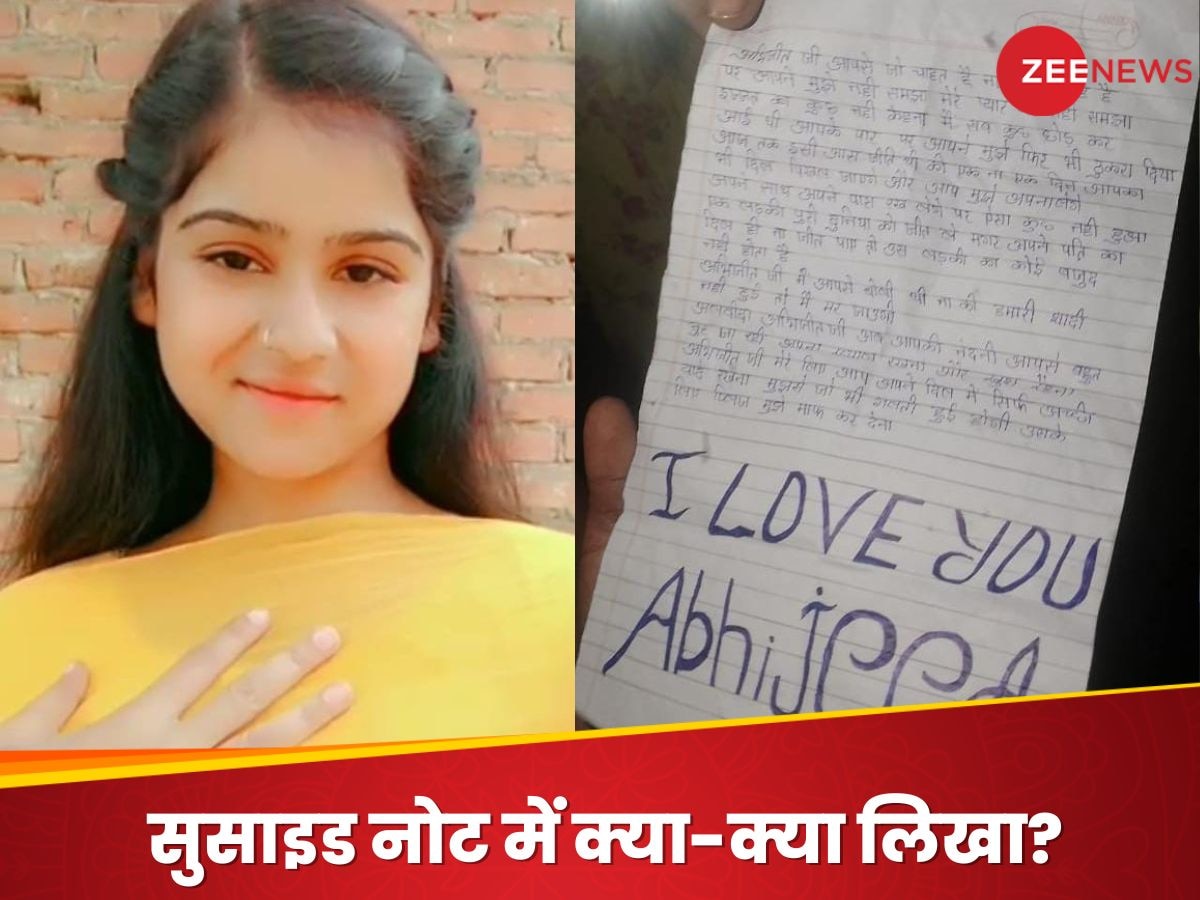 ZEENEWS
अभिजीत जी आपसे जो चाहत है
पर आपने मुझे नही समझा मेरे प्यार नही समझा
इज्जत का कुछ नही मैं सब कुछ छोड़ कर
आई थी आपके पार पर आपने मुझे फिर भी ठुकरा दिया
आज तक इसी आस थी की एक ना एक दिन आपका
भी दिल पिघल जाएगे और आप मुझे अपनालेगे
अपने साथ अपने पास रख लेगे पर ऐसा कुछ नही हुआ
एक लड़की पुरी दुनिया को जीत ले मगर अपने पति का
दिल ही ना जीत पाए तो उस लड़की का कोई वजुद
नही होता है
अभिजीत जी मै आपसे बोली थी ना की हमारी शादी
नही हुई तो मै मर जाउगी
अलवीदा अभिजीत जी अब आपकी नंदनी आपसे बहुत
दुर जा रही अपना ख्याल रखना और खुश रेहना
अभिजीत जी मेरे लिए आप अपने दिल मे सिर्फ अच्छी
यादे रखना मुझसे जो भी गलती हुई होगी उसके
लिए प्लिज मुझे माफ कर देना
I LOVE YOU
सुसाइड नोट में क्या-क्या लिखा?